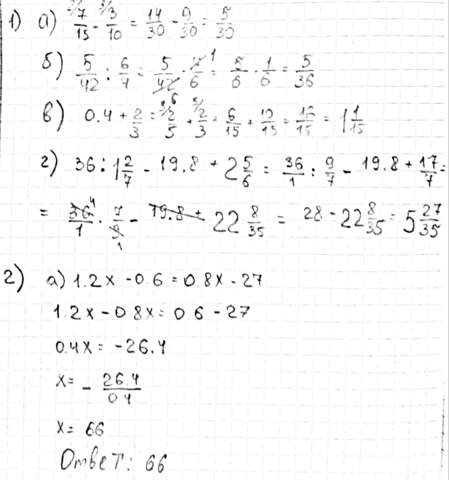 1) а) 7/15 - 3/10 = 14/30 - 9/30 = 5/30
б) 5/42 : 6/7 = 5/42 · 7/6 = 5/6 · 1/6 = 5/36
в) 0.4 + 2/3 = 2/5 + 2/3 = 6/15 + 10/15 = 16/15 = 1 1/15
г) 36 : 1 2/7 - 19.8 + 2 5/6 = 36/1 : 9/7 - 19.8 + 17/7 =
= 36/1 · 7/9 - 19.8 + 22 8/35 = 28 - 22 8/35 = 5 27/35
2) а) 1.2x - 0.6 = 0.8x - 27
1.2x - 0.8x = 0.6 - 27
0.4x = -26.4
x = - 26.4/0.4
x = 66
Ответ: 66